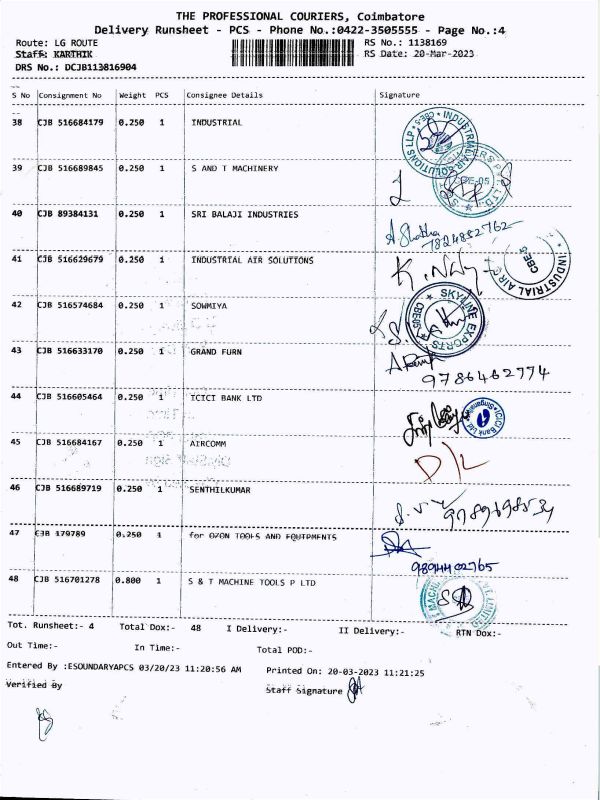 THE PROFESSIONAL COURIERS, Coimbatore
Delivery Runsheet - PCS - Phone No.:0422-3505555 - Page No.:4
Route: LG ROUTE RS No.: 1138169
Staff: KARTHIK RS Date: 20-Mar-2023
DRS No.: DCJB113816904
S No Consignment No Weight PCS Consignee Details Signature
38 CJB 516684179 0.250 1 INDUSTRIAL
39 CJB 516689845 0.250 1 S AND T MACHINERY
40 CJB 89384131 0.250 1 SRI BALAJI INDUSTRIES
7824852762
41 CJB 516629679 0.250 1 INDUSTRIAL AIR SOLUTIONS
INDUSTRIAL AIR
CBE-5
42 CJB 516574684 0.250 1 SOWMIYA
SKYLINE EXPORTS
CBE-05
43 CJB 516633170 0.250 1 GRAND FURN
9786462774
44 CJB 516605464 0.250 1 ICICI BANK LTD
ICICI Bank Ltd.
45 CJB 516684167 0.250 1 AIRCOMM
D/L
46 CJB 516689719 0.250 1 SENTHILKUMAR
47 CJB 179789 0.250 1 for OZON TOOLS AND EQUIPMENTS
48 CJB 516701278 0.800 1 S & T MACHINE TOOLS P LTD
Tot. Runsheet:- 4 Total Dox:- 48 I Delivery:- II Delivery:- RTN Dox:-
Out Time:- In Time:- Total POD:-
Entered By :ESOUNDARYAPCS 03/20/23 11:20:56 AM Printed On: 20-03-2023 11:21:25
Verified By Staff Signature